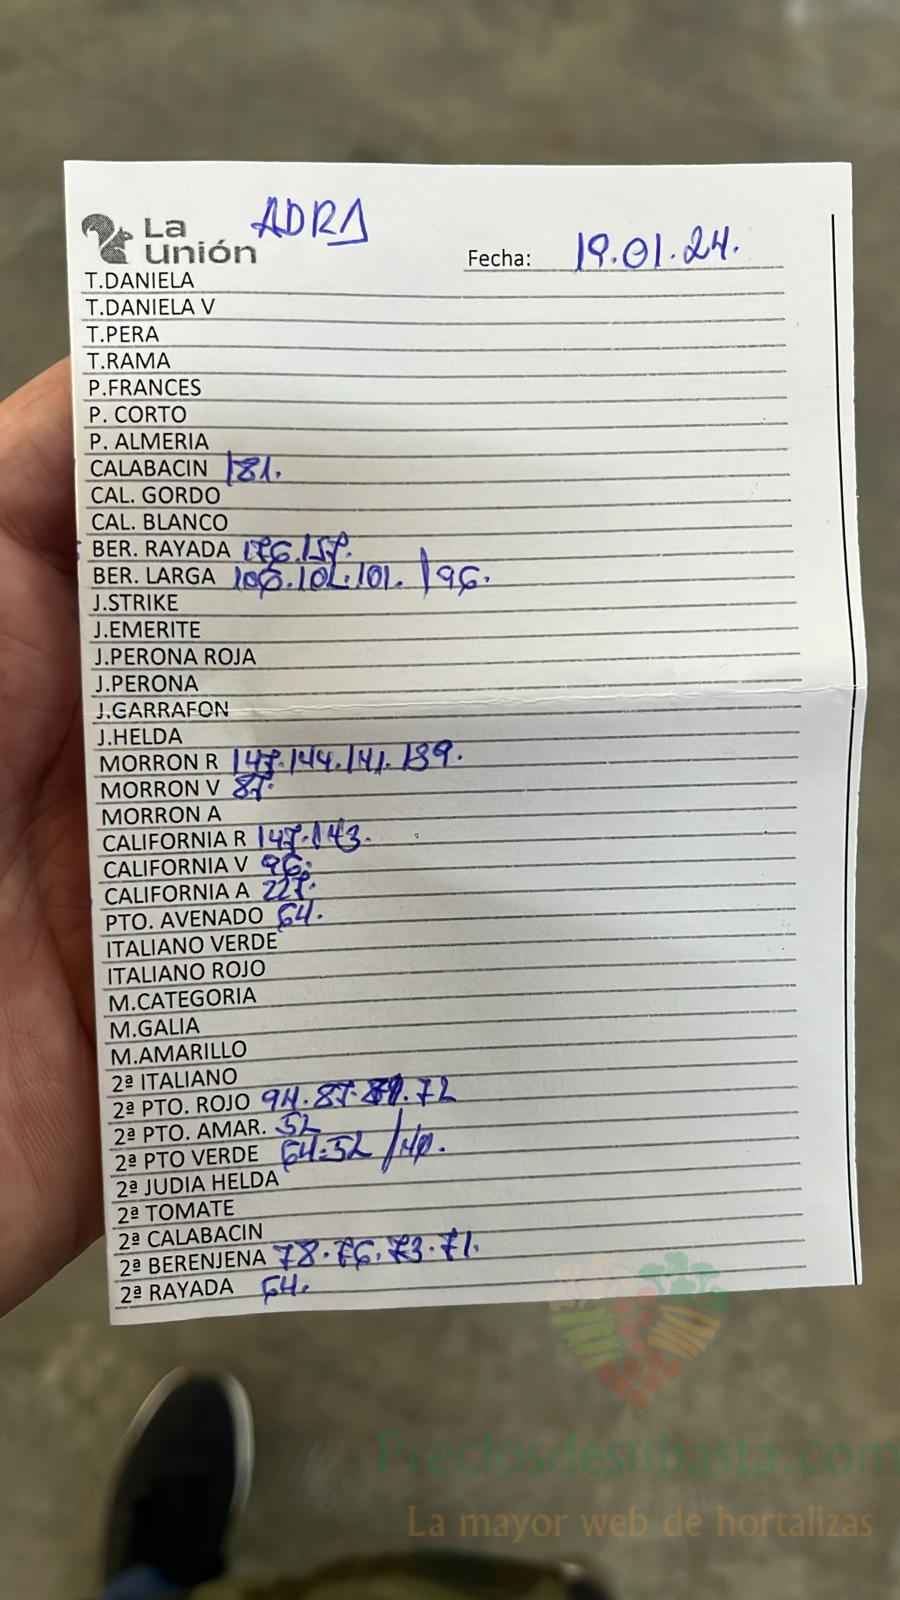 La Unión ADRA
Fecha: 19.01.24.
T.DANIELA
T.DANIELA V
T.PERA
T.RAMA
P.FRANCES
P. CORTO
P. ALMERIA
CALABACIN /81.
CAL. GORDO
CAL. BLANCO
BER. RAYADA 176.157.
BER. LARGA 106.102.101. /96.
J.STRIKE
J.EMERITE
J.PERONA ROJA
J.PERONA
J.GARRAFON
J.HELDA
MORRON R 147.144.141.139.
MORRON V 87.
MORRON A
CALIFORNIA R 147.143.
CALIFORNIA V 96.
CALIFORNIA A 227.
PTO. AVENADO 64.
ITALIANO VERDE
ITALIANO ROJO
M.CATEGORIA
M.GALIA
M.AMARILLO
2ª ITALIANO
2ª PTO. ROJO 94.87. 72
2ª PTO. AMAR. 52
2ª PTO VERDE 64.52 /40.
2ª JUDIA HELDA
2ª TOMATE
2ª CALABACIN
2ª BERENJENA 78.76.73.71.
2ª RAYADA 64.
Preciosdesubasta.com
La mayor web de hortalizas